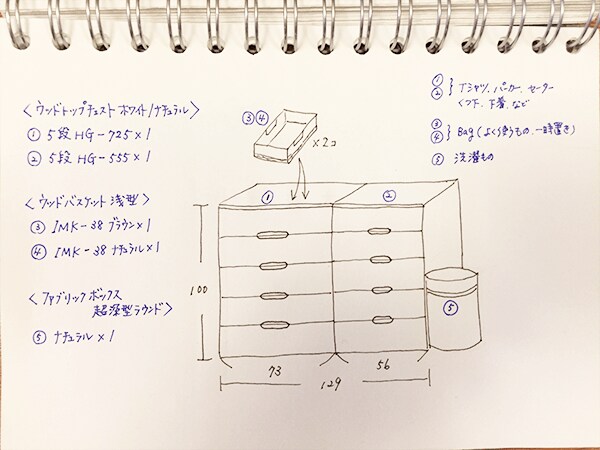 <ウッドトップチェスト ホワイト/ナチュラル>
① 5段 HG-725×1
② 5段 HG-555×1
<ウッドバスケット 浅型>
③ IMK-38 ブラウン×1
④ IMK-38 ナチュラル×1
<ファブリックボックス
超深型ラウンド>
⑤ ナチュラル×1
③④
×2コ
① ②
100
⑤
73 56
129
①
② } Tシャツ、パーカー、セーター
くつ下、下着、など
③
④ } Bag (よく使うもの、一時置き)
⑤ 洗濯もの